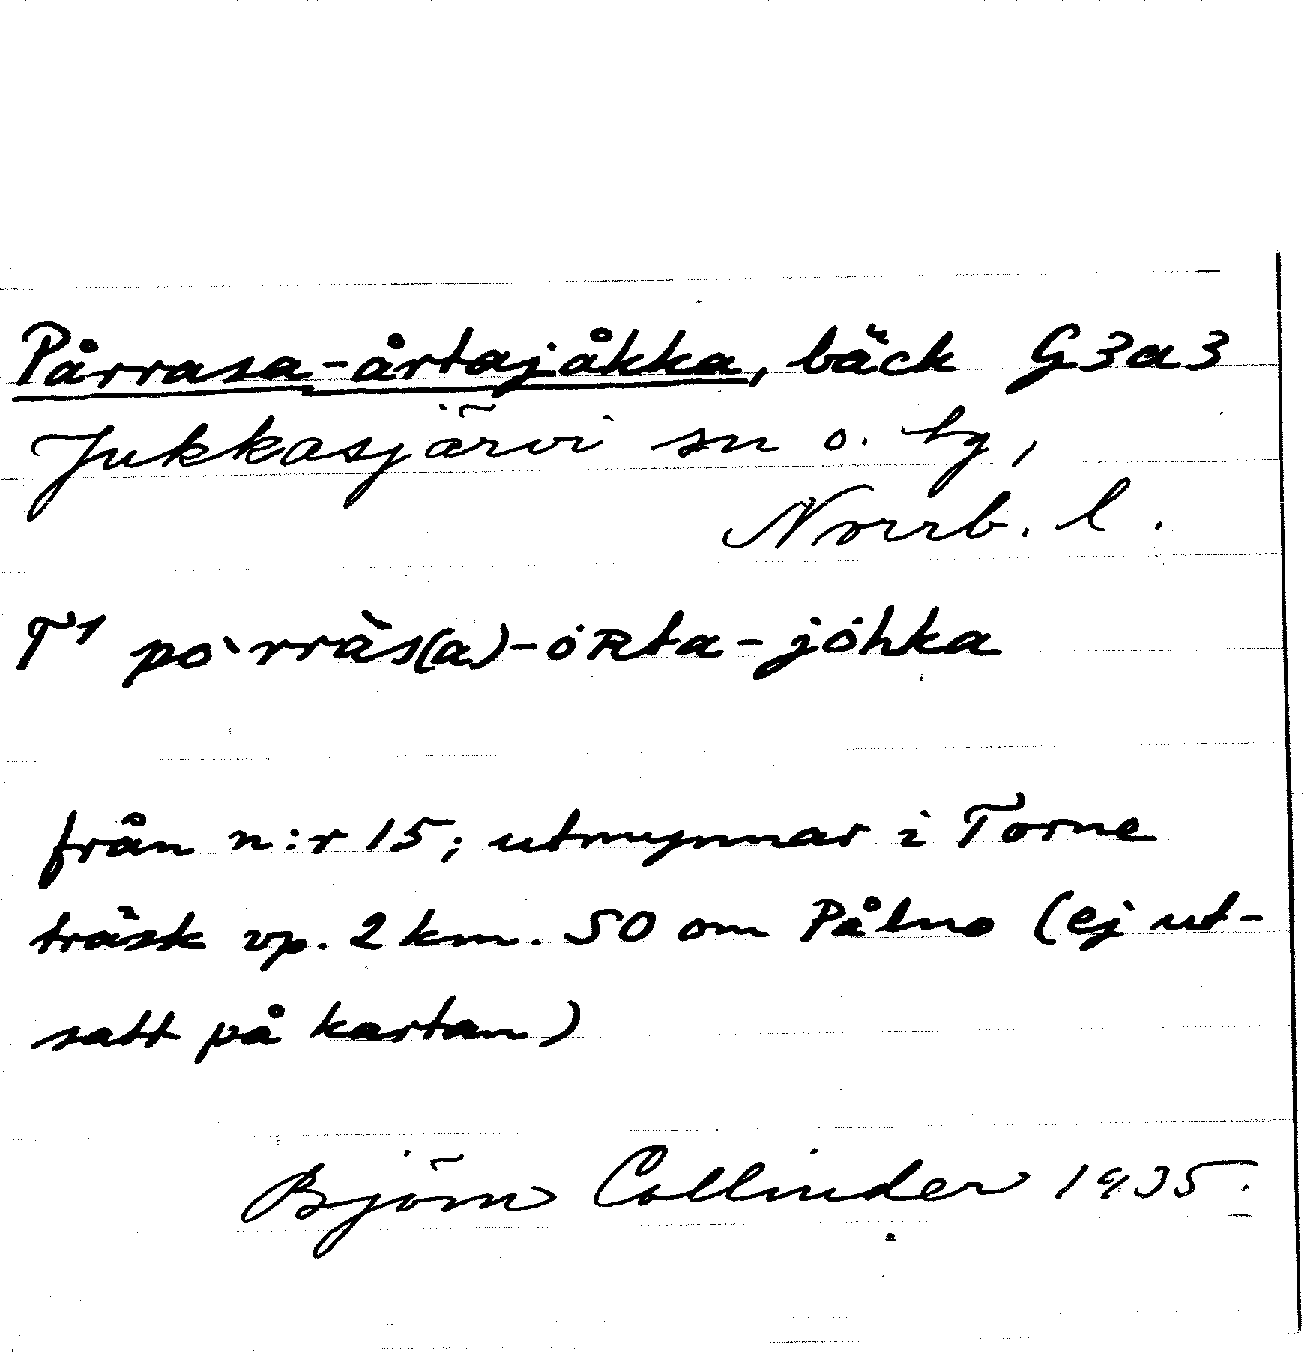 Pårrasa-årtajåkka, bäck G3a3
Jukkasjärvi sn o. tg,
Norrb. l.
T1 pȯ`rràs(a)-ȯRta-jȯhka
från n:r 15; utmynnar i Torne
träsk vp. 2 km. SO om Pålno (ej ut-
satt på kartan)
Björn Collinder 1935.